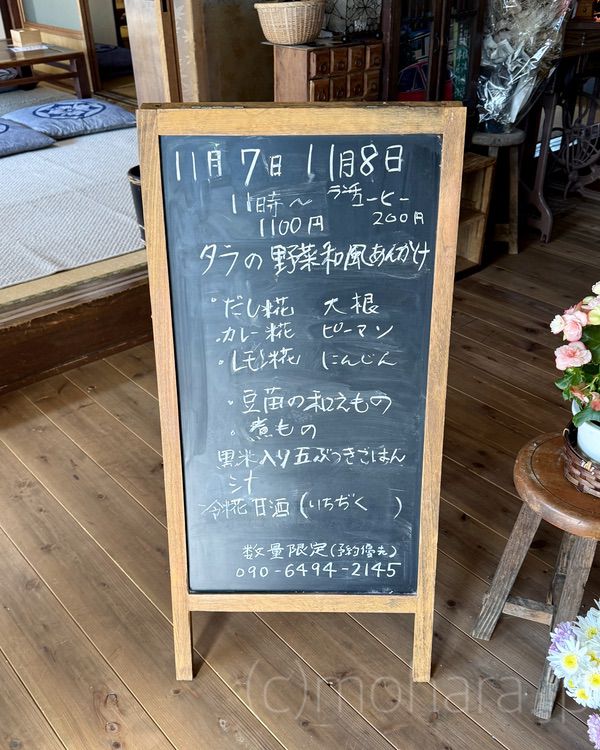 11月7日 11月8日
11時～ ランチコーヒー
1100円 200円
タラの野菜和風あんかけ
・だし糀 大根
・カレー糀 ピーマン
・レモン糀 にんじん
・豆苗の和えもの
・煮もの
黒米入り五ぶつきごはん
汁
冷糀甘酒(いちぢく )
数量限定(予約優先)
090-6494-2145
(c)mohara.jp